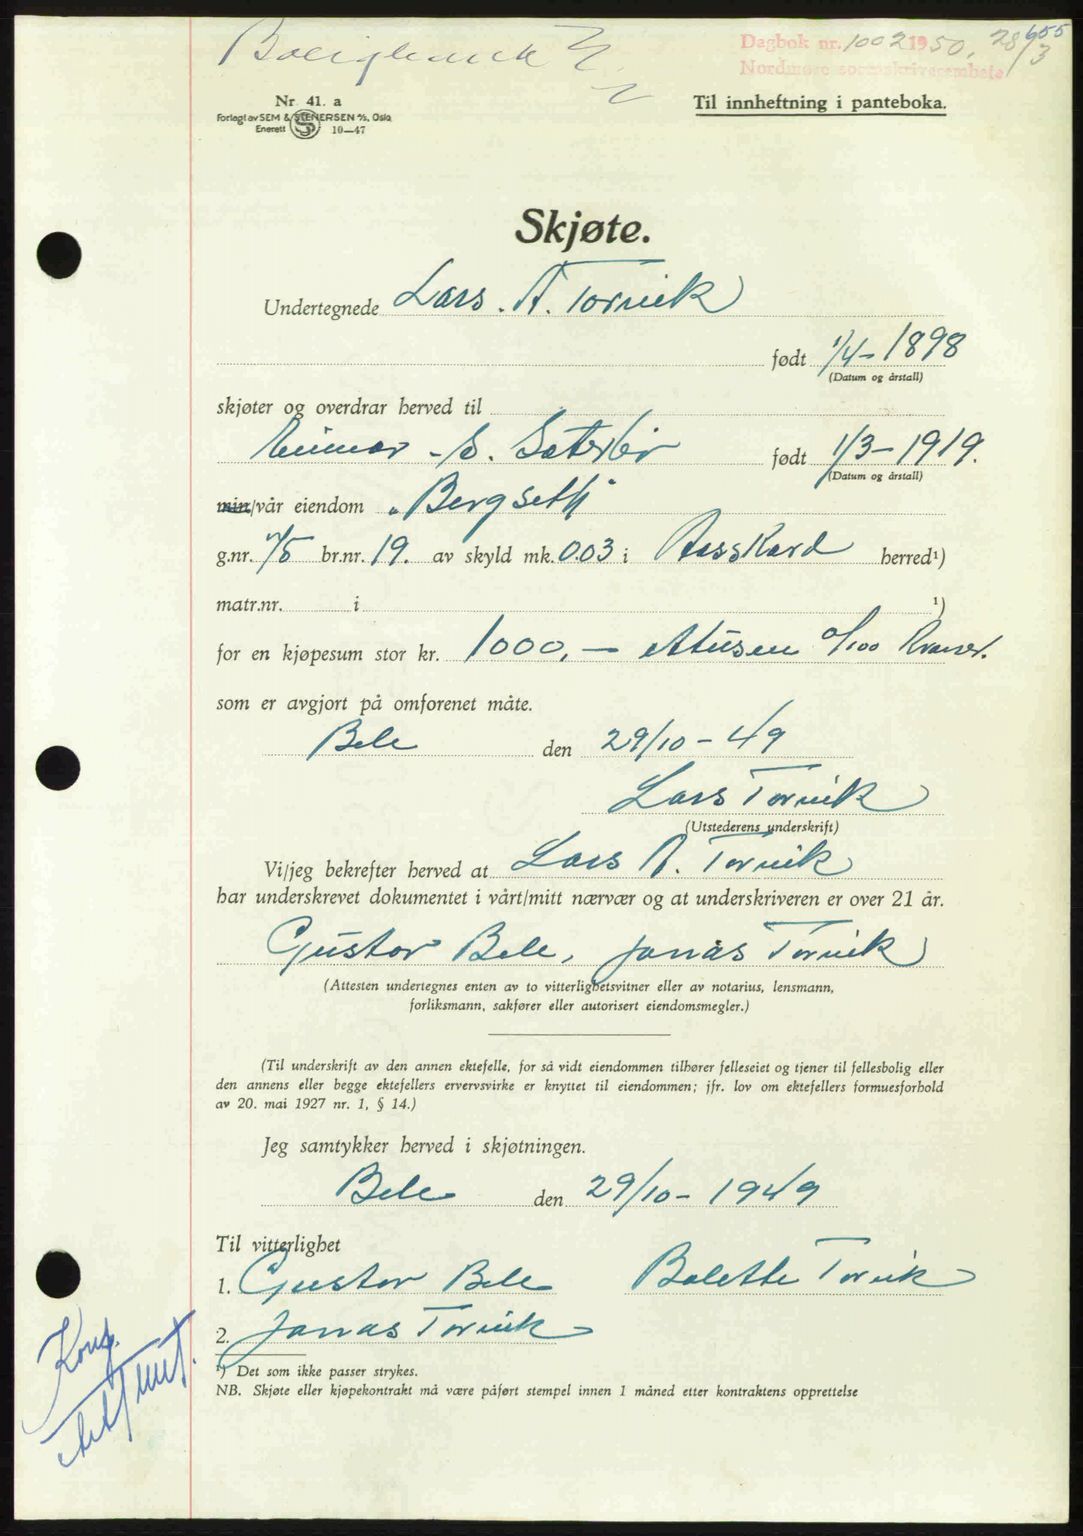 Dagbok nr. 1002 1950. 28/3 655
Nordmøre sorenskriverembete
Nr. 41. a
Forlagt av SEM & STENERSEN A/S, Oslo
Enerett 10—47
Til innheftning i panteboka.
Skjøte.
Undertegnede Lars. A. Torvik
født 1/4 - 1898
(Datum og årstall)
skjøter og overdrar herved til
Einar S. født 1/3 - 1919.
(Datum og årstall)
min/vår eiendom „Bergseth"
g.nr. 75 br.nr. 19. av skyld mk. 0.03 i Aasskard herred¹)
matr.nr. i ¹)
for en kjøpesum stor kr. 1000,— Attusen 0/100 Kroner.
som er avgjort på omforenet måte.
Bele den 29/10 - 49
Lars Torvik
(Utstederens underskrift)
Vi/jeg bekrefter herved at Lars A. Torvik
har underskrevet dokumentet i vårt/mitt nærvær og at underskriveren er over 21 år.
Gustav Bele, Jonas Torvik
(Attesten undertegnes enten av to vitterlighetsvitner eller av notarius, lensmann,
forliksmann, sakfører eller autorisert eiendomsmegler.)
(Til underskrift av den annen ektefelle, for så vidt eiendommen tilhører felleseiet og tjener til fellesbolig eller
den annens eller begge ektefellers ervervsvirke er knyttet til eiendommen; jfr. lov om ektefellers formuesforhold
av 20. mai 1927 nr. 1, § 14.)
Jeg samtykker herved i skjøtningen.
Bele den 29/10 - 1949
Til vitterlighet
1. Gustav Bele Bolette Torvik
2. Jonas Torvik
¹) Det som ikke passer strykes.
NB. Skjøte eller kjøpekontrakt må være påført stempel innen 1 måned etter kontraktens opprettelse